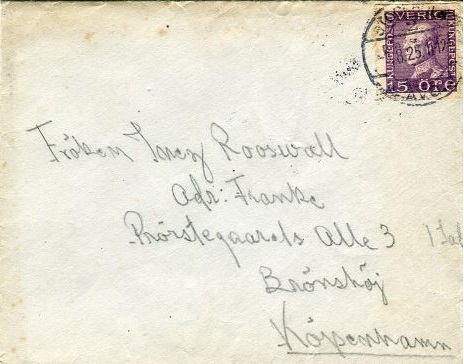 SVERIGE
15 ÖRE
8.25
Fröken Inez Rooswall
Adr: Franke
Alle 3 1 Sal
Brönshöj
Köpenhamn